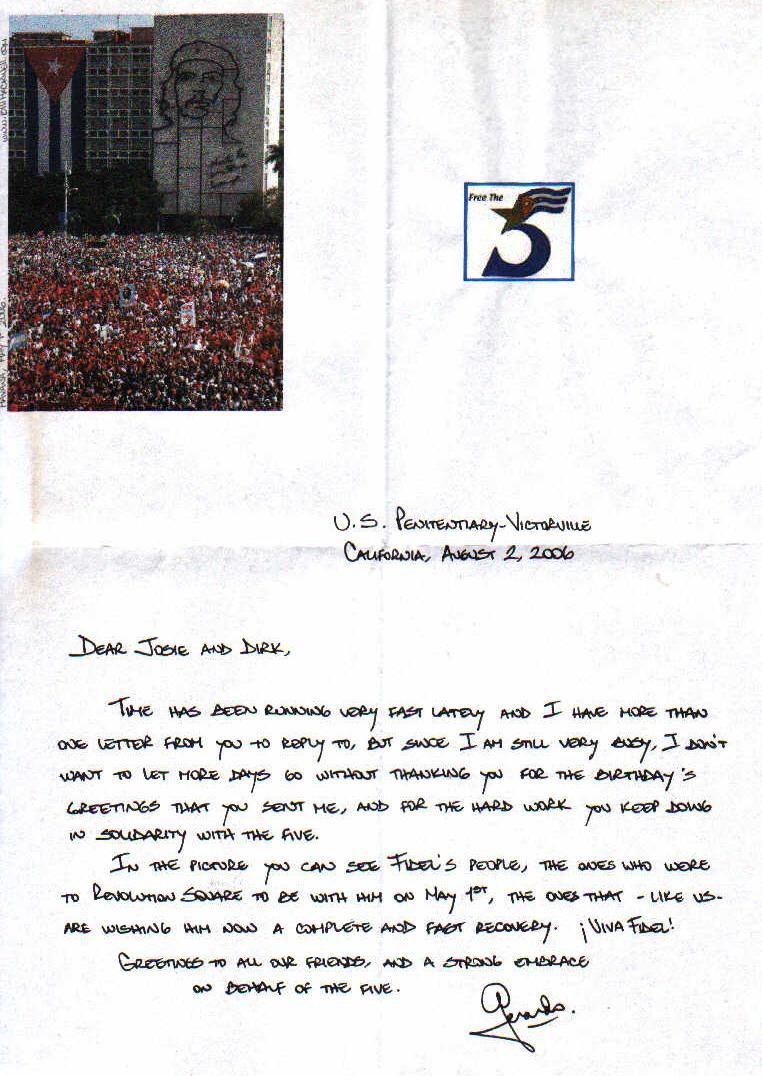 Free The
5
U.S. PENITENTIARY-VICTORVILLE
CALIFORNIA, AUGUST 2, 2006
DEAR JOSIE AND DIRK,
TIME HAS BEEN RUNNING VERY FAST LATELY AND I HAVE MORE THAN
ONE LETTER FROM YOU TO REPLY TO, BUT SINCE I AM STILL VERY BUSY, I DON'T
WANT TO LET MORE DAYS GO WITHOUT THANKING YOU FOR THE BIRTHDAY'S
GREETINGS THAT YOU SENT ME, AND FOR THE HARD WORK YOU KEEP DOING
IN SOLIDARITY WITH THE FIVE.
IN THE PICTURE YOU CAN SEE FIDEL'S PEOPLE, THE ONES WHO WERE
TO REVOLUTION SQUARE TO BE WITH HIM ON MAY 1ST, THE ONES THAT - LIKE US-
ARE WISHING HIM NOW A COMPLETE AND FAST RECOVERY. ¡VIVA FIDEL!
GREETINGS TO ALL OUR FRIENDS, AND A STRONG EMBRACE
ON BEHALF OF THE FIVE.
Gerardo.
HAVANA, MAY 1st 2006.